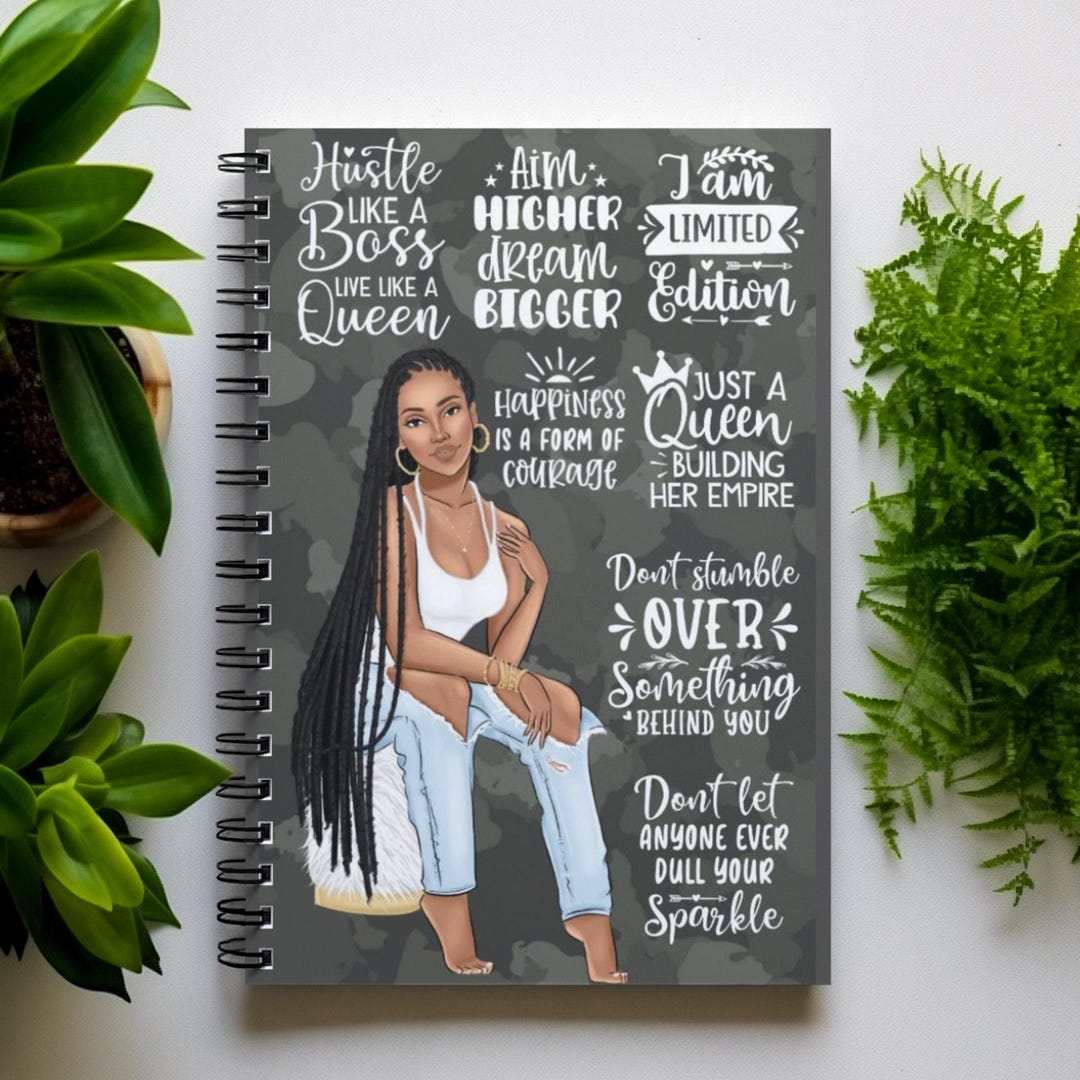 Hustle
LIKE A
Boss
LIVE LIKE A
Queen
AIM
HIGHER
dREAM
BIGGER
I am
LIMITED
Edition
HAPPINESS
IS A FORM OF
COURAGE
JUST A
Queen
BUILDING
HER EMPIRE
Don't stumble
OVER
Something
BEHIND YOU
Don't let
ANYONE EVER
DULL YOUR
Sparkle